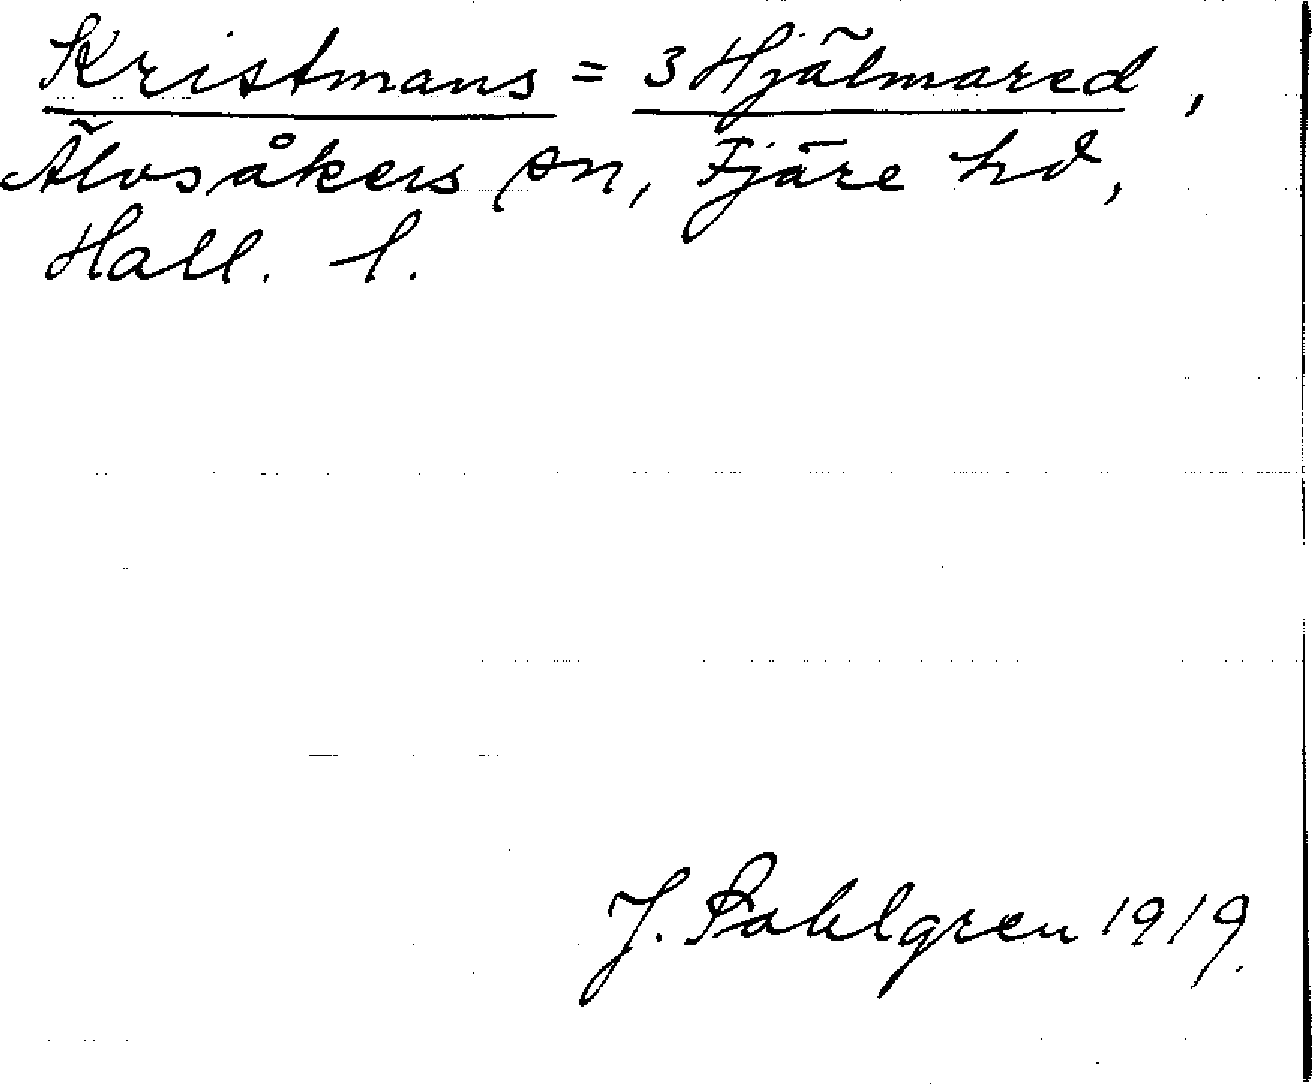 Kristmans = 3 Hjälmared,
Älvsåkers sn, Fjäre hd,
Hall. l.
J. Sahlgren 1919.